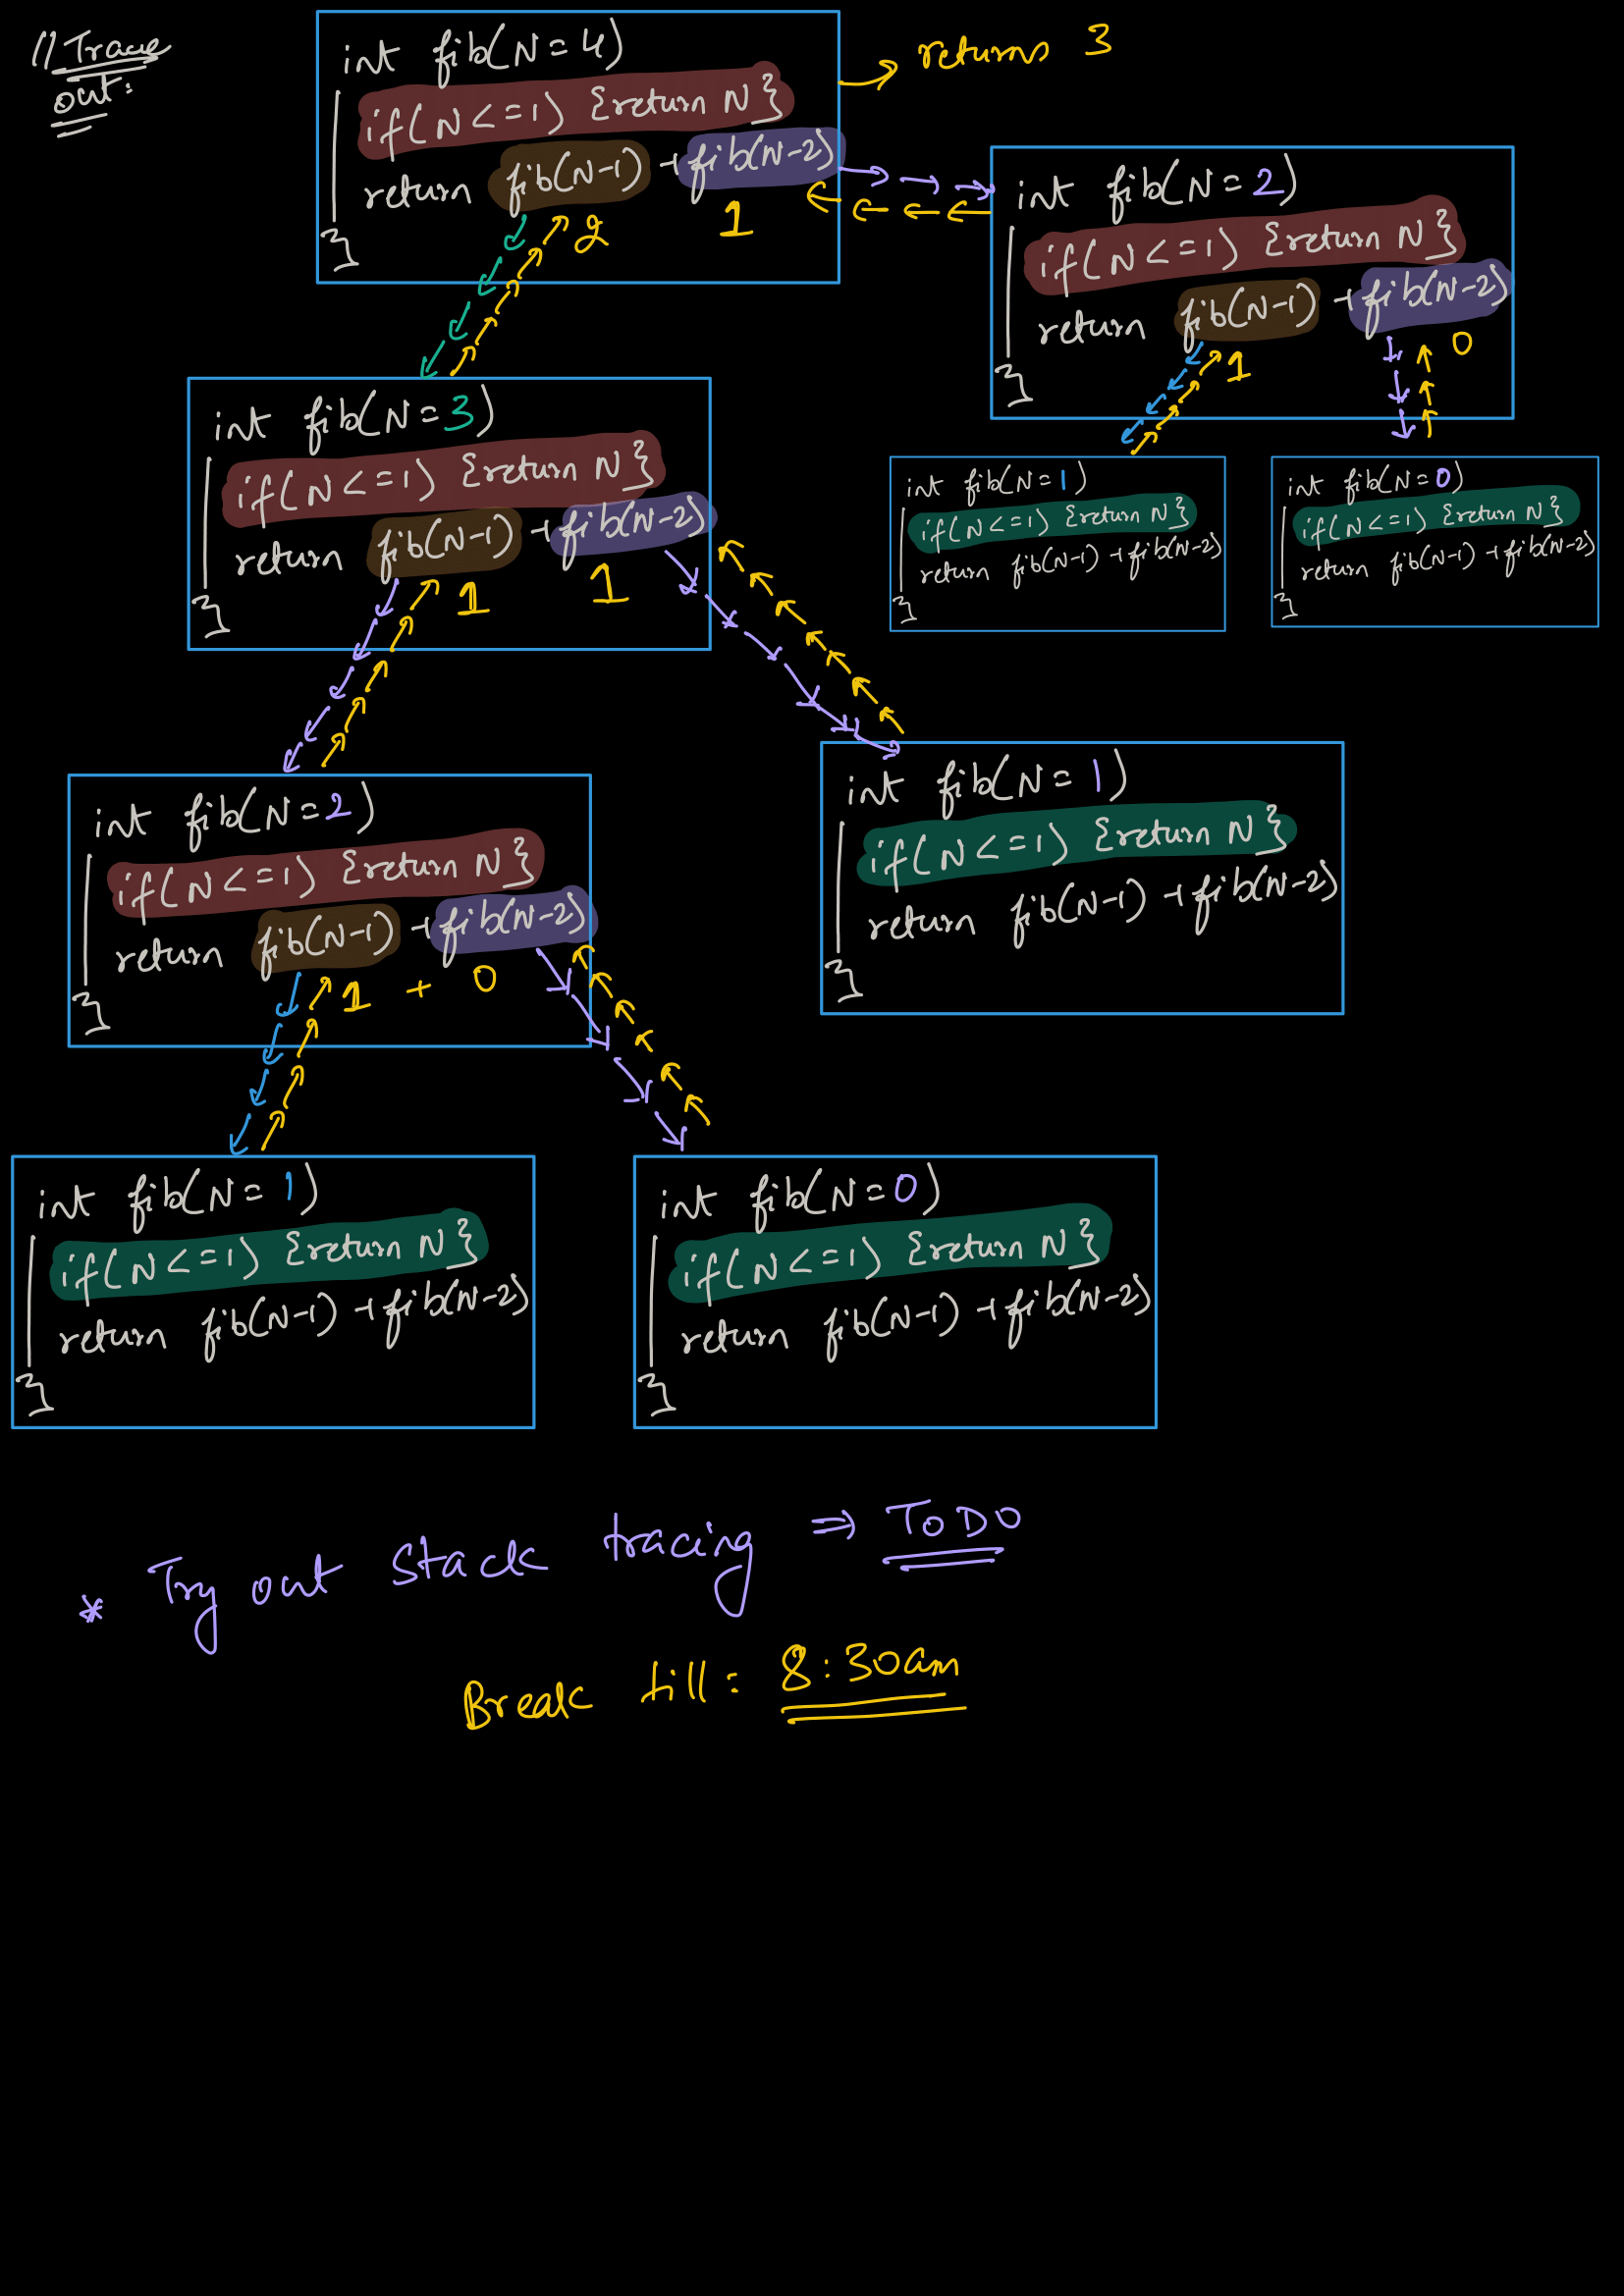 // Trace
out:
int fib(N=4)
{
if(N<=1) {return N}
return fib(N-1) + fib(N-2)
}
2 1
returns 3
int fib(N=2)
{
if(N<=1) {return N}
return fib(N-1) + fib(N-2)
}
1 0
int fib(N=3)
{
if(N<=1) {return N}
return fib(N-1) + fib(N-2)
}
1 1
int fib(N=1)
{
if(N<=1) {return N}
return fib(N-1) + fib(N-2)
}
int fib(N=0)
{
if(N<=1) {return N}
return fib(N-1) + fib(N-2)
}
int fib(N=2)
{
if(N<=1) {return N}
return fib(N-1) + fib(N-2)
}
1 + 0
int fib(N=1)
{
if(N<=1) {return N}
return fib(N-1) + fib(N-2)
}
int fib(N=1)
{
if(N<=1) {return N}
return fib(N-1) + fib(N-2)
}
int fib(N=0)
{
if(N<=1) {return N}
return fib(N-1) + fib(N-2)
}
* Try out stack tracing ⇒ ToDO
Break till: 8:30am